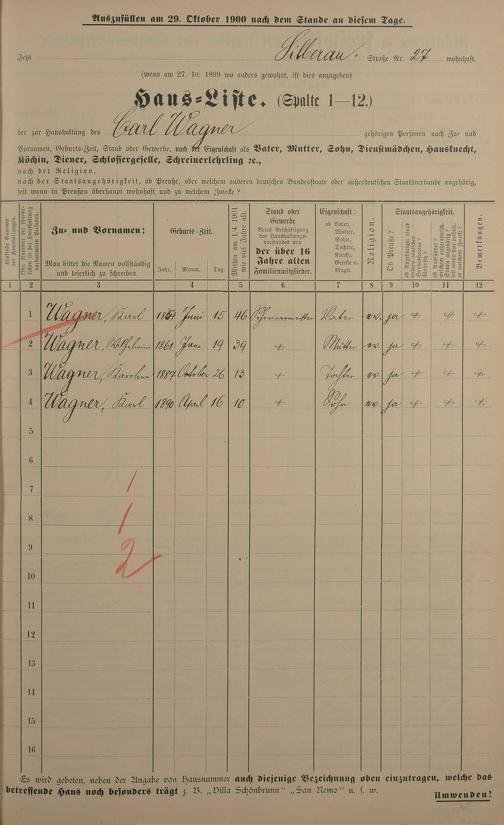 Auszufüllen am 29. Oktober 1900 nach dem Stande an diesem Tage.
Jetzt Silberau. Straße Nr. 27 wohnhaft.
(wenn am 27. 10. 1899 wo anders gewohnt, ist dies anzugeben)
Haus-Liste. (Spalte 1—12.)
der zur Haushaltung des Carl Wagner gehörigen Personen nach Zu- und
Vornamen, Geburts-Zeit, Stand oder Gewerbe, nach der Eigenschaft als Vater, Mutter, Sohn, Dienstmädchen, Hausknecht,
Köchin, Diener, Schlossergeselle, Schreinerlehrling ꝛc.,
nach der Religion,
nach der Staatsangehörigkeit, ob Preuße, oder welchem anderen deutschen Bundesstaate oder außerdeutschen Staatsverbande angehörig,
seit wann in Preußen überhaupt wohnhaft und zu welchem Zwecke?
Zu- und Vornamen:
Man bittet die Namen vollständig
und leserlich zu schreiben.
Geburts-Zeit.
Jahr. Monat. Tag.
Mithin am 1/4 1901
wie viel Jahre alt.
Stand oder
Gewerbe
Beruf Beschäftigung
des Haushaltungs-
vorstandes und
der über 16
Jahre alten
Familienmitglieder.
Eigenschaft:
ob Vater,
Mutter,
Sohn,
Tochter,
Knecht,
Geselle ꝛc.
Magd.
Religion.
Staatsangehörigkeit.
Ob Preuße?
Bemerkungen.
1 2 3 4 5 6 7 8 9 10 11 12
1 Wagner, Karl Juni 15 46 Schreinermeister Vater ev. ja + + +
2 Wagner, Wilhelmine 1861 Juni 19 39 + Mutter ev. ja + + +
3 Wagner, Karoline 1887 October 26 13 + Tochter ev. ja + + +
4 Wagner, Karl 1890 April 16 10 + Sohn ev. ja + + +
5
6
7
8
9
10
11
12
13
14
15
16
1
1
2
Es wird gebeten, neben der Angabe von Hausnummer auch diejenige Bezeichnung oben einzutragen, welche das
betreffende Haus noch besonders trägt z. B. "Villa Schönbrunn" "San Remo" u. s. w.
Umwenden!